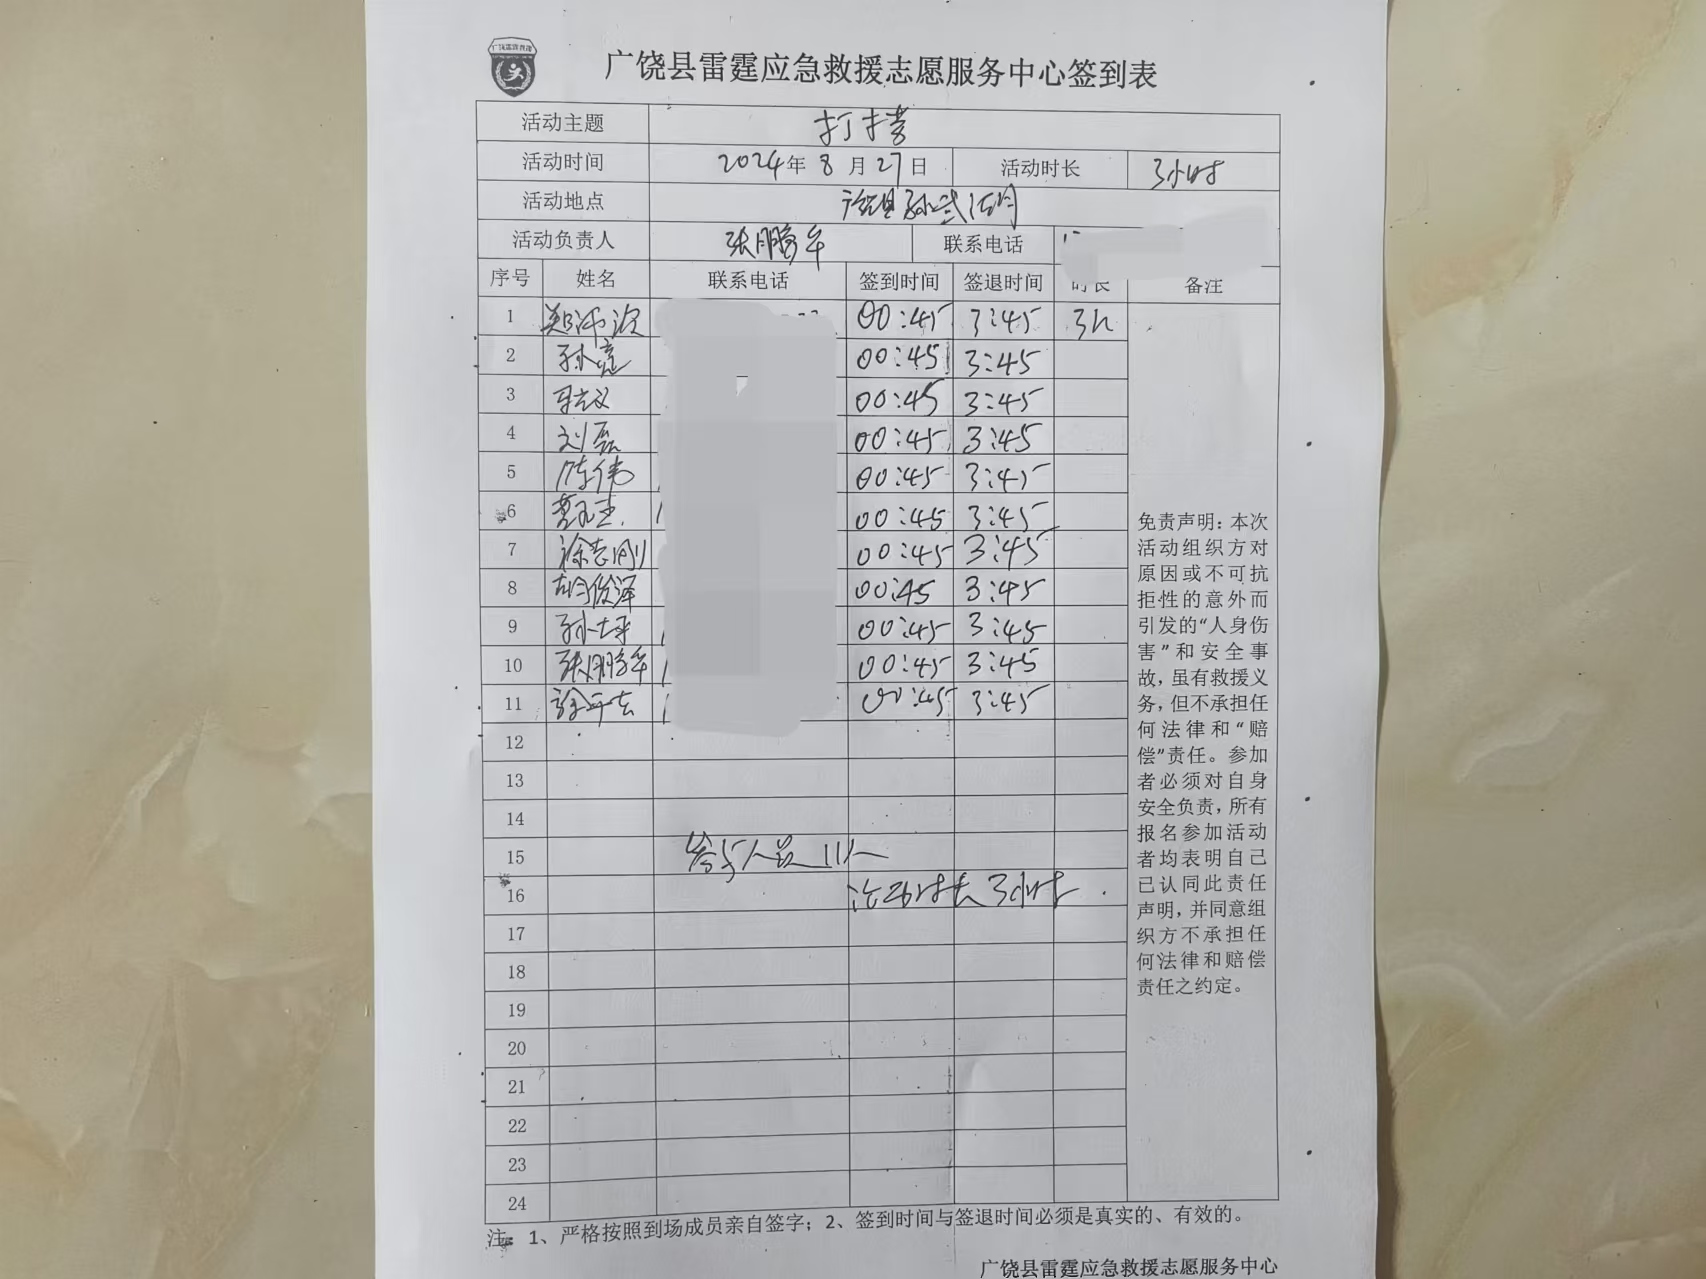 广饶县雷霆应急救援志愿服务中心签到表
活动主题 打捞
活动时间 2024年 8 月 27 日 活动时长 3小时
活动地点 广饶县孙武
活动负责人 张鹏 联系电话
序号 姓名 联系电话 签到时间 签退时间 时长 备注
1 00:45 3:45 3h
2 孙亮 00:45 3:45
3 00:45 3:45
4 刘磊 00:45 3:45
5 陈伟 00:45 3:45
6 00:45 3:45
7 徐志刚 00:45 3:45
8 俊泽 00:45 3:45
9 孙 00:45 3:45
10 张鹏 00:45 3:45
11 徐 00:45 3:45
12
13
14
15 参与人员11人
16 活动时长3小时.
17
18
19
20
21
22
23
24
免责声明：本次
活动组织方对
原因或不可抗
拒性的意外而
引发的“人身伤
害”和安全事
故，虽有救援义
务，但不承担任
何法律和“赔
偿”责任。参加
者必须对自身
安全负责，所有
报名参加活动
者均表明自己
已认同此责任
声明，并同意组
织方不承担任
何法律和赔偿
责任之约定。
注：1、严格按照到场成员亲自签字；2、签到时间与签退时间必须是真实的、有效的。
广饶县雷霆应急救援志愿服务中心